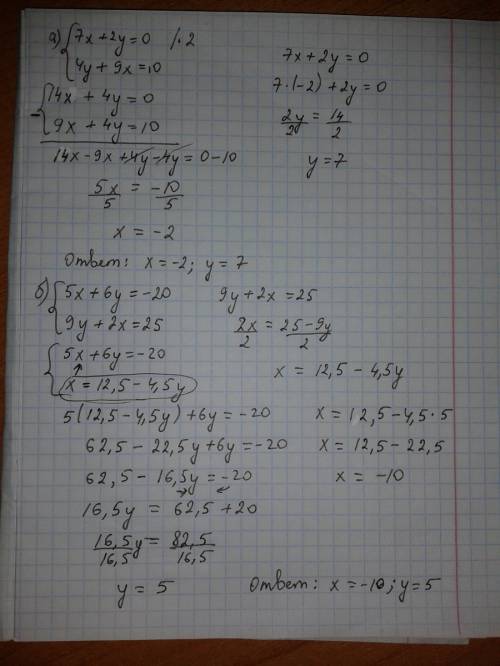 а) { 7x+2y=0 /·2
4y+9x=10
{ 14x+4y=0
− 9x+4y=10
14x−9x+4y−4y=0−10
5x/5 = −10/5
x = −2
7x+2y=0
7·(−2)+2y=0
2y/2 = 14/2
y=7
Ответ: x=−2; y=7
б) { 5x+6y=−20
9y+2x=25
{ 5x+6y=−20
x=12,5−4,5y
5(12,5−4,5y)+6y=−20
62,5−22,5y+6y=−20
62,5−16,5y=−20
16,5y = 62,5+20
16,5y/16,5 = 82,5/16,5
y = 5
9y+2x=25
2x/2 = 25−9y/2
x = 12,5−4,5y
x=12,5−4,5·5
x=12,5−22,5
x = −10
Ответ: x=−10; y=5